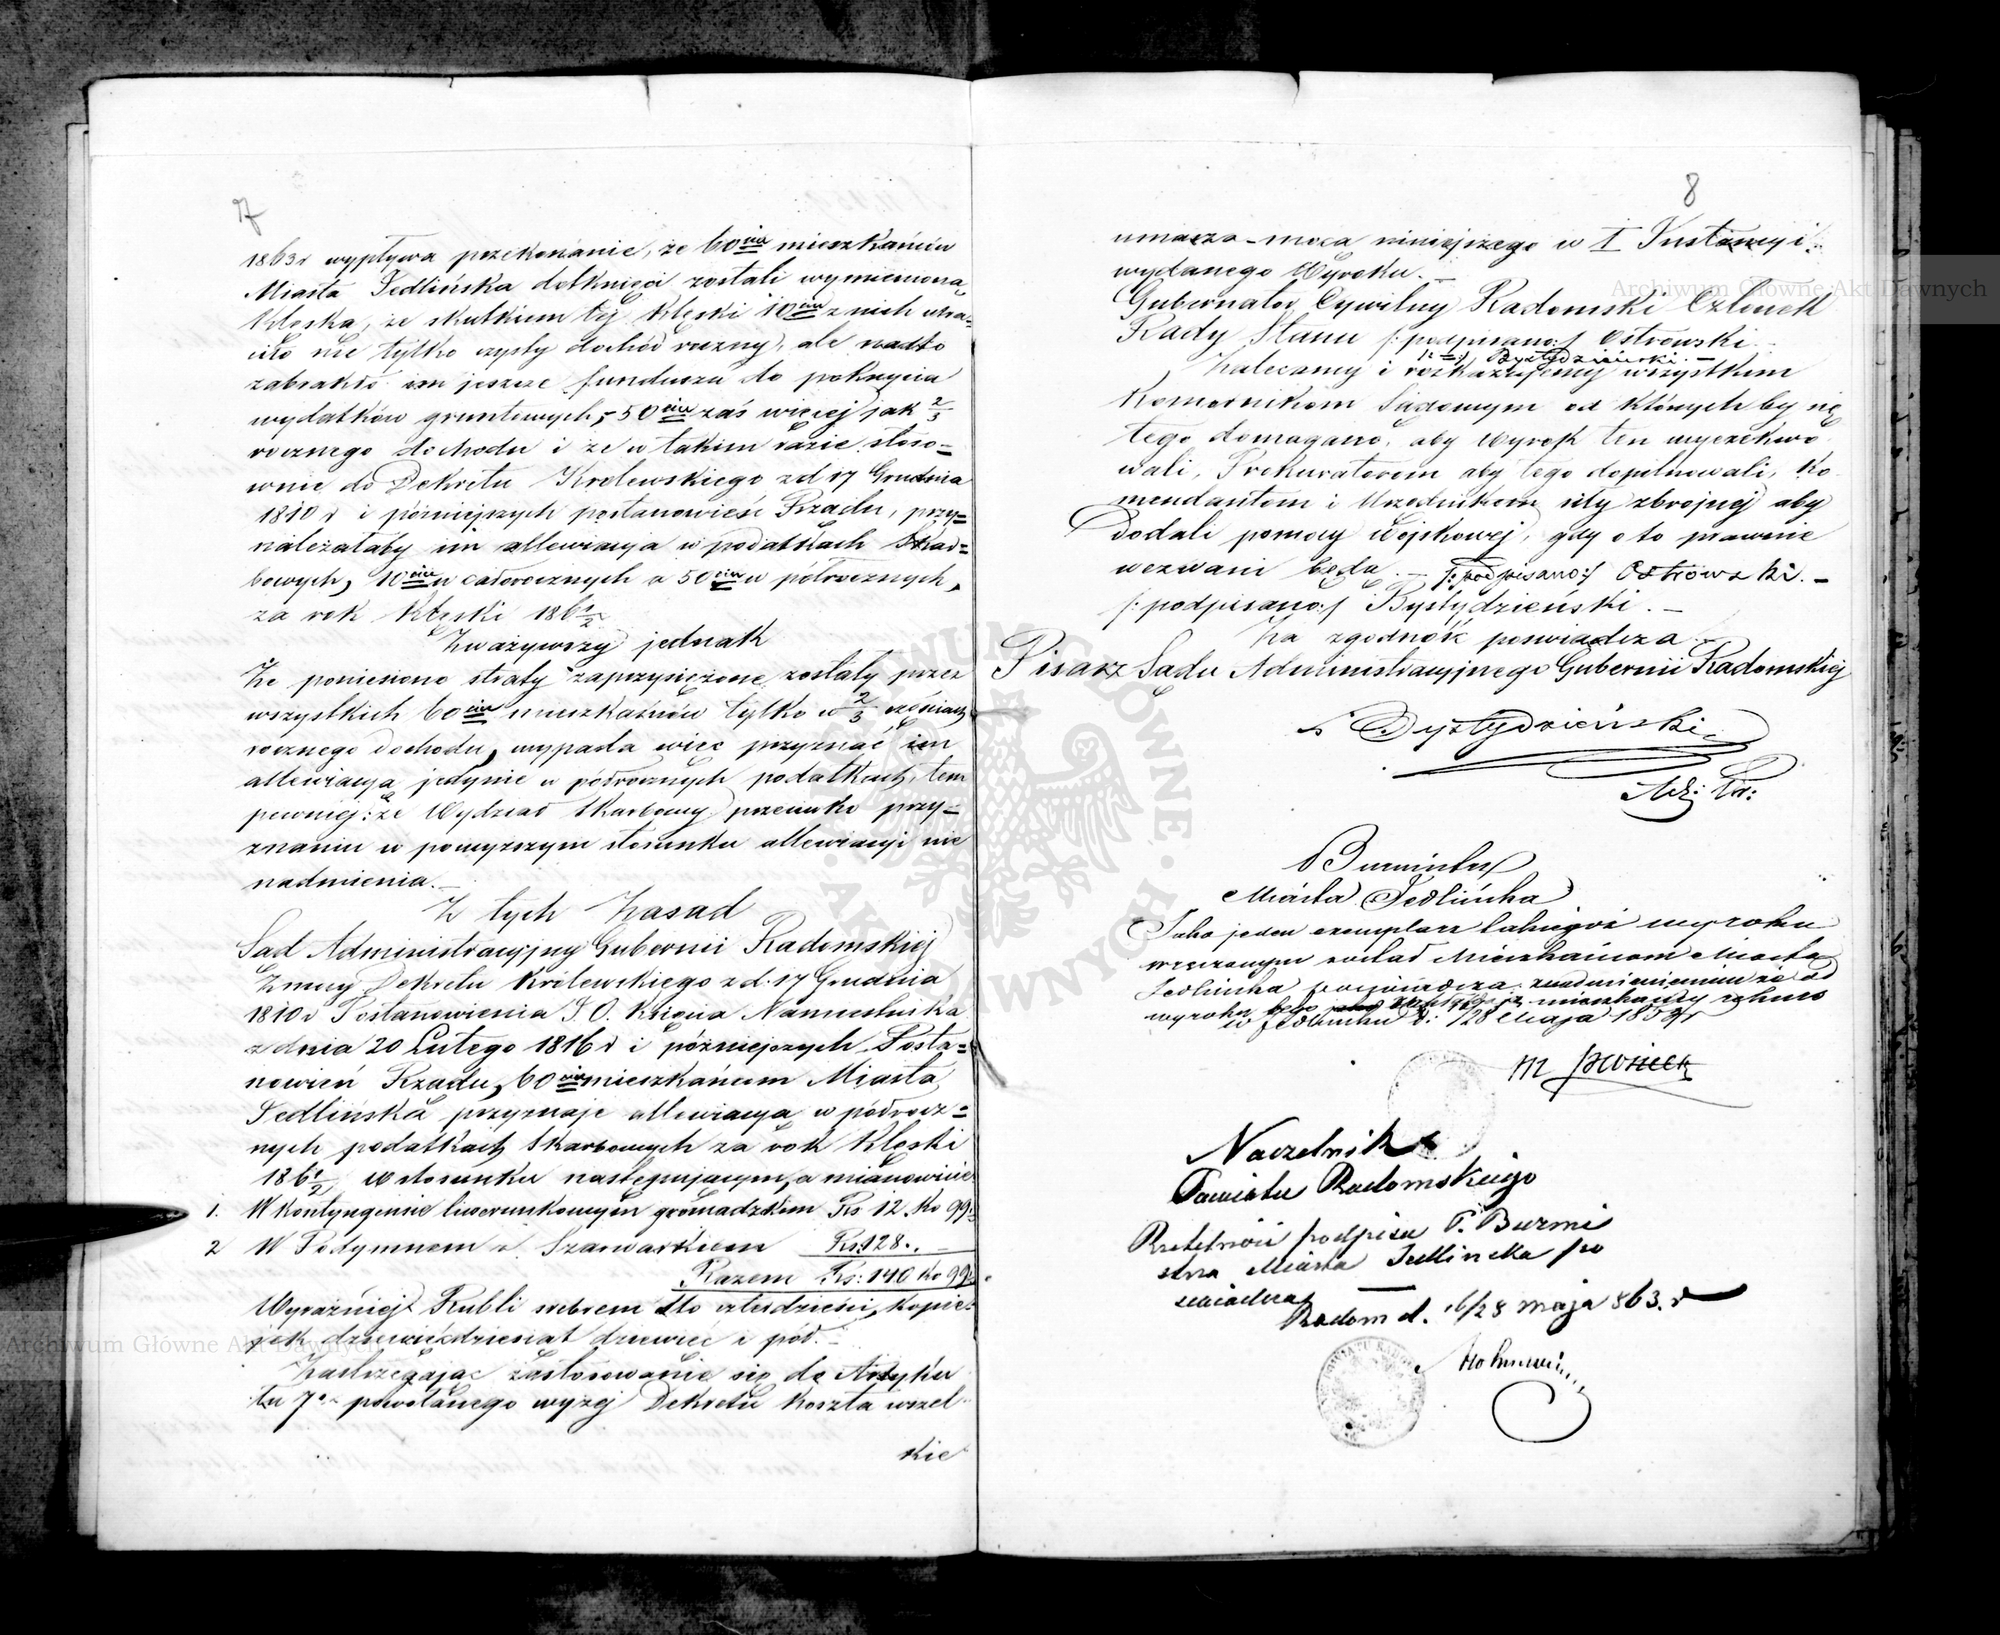 7
1863 r wypływa przekonanie, że 60ciu mieszkańców
Miasta Jedlińska dotknięci zostali wymienioną
klęską, że skutkiem tej klęski 10ciu z nich utra=
ciło nie tylko czysty dochód roczny, ale nadto
zabrakło im jeszcze funduszu do pokrycia
wydatków gruntowych, 50ciu zaś więcej jak 2/3
rocznego dochodu i że w takim razie stoso=
wnie do Dekretu Królewskiego z d 17 Grudnia
1810 r i późniejszych postanowień Rządu, przy=
należałaby im allewiacya w podatkach Skar=
bowych, 10ciu w całorocznych a 50ciu w półrocznych,
za rok klęski 186 1/2
Zważywszy jednak
Że poniesione straty zaprzysiężone zostały przez
wszystkich 60ciu mieszkańców tylko w 2/3 częściach
rocznego dochodu, wypada więc przyznać im
allewiacyą jedynie w półrocznych podatkach, tem
pewniej: że Wydział Skarbowy przeciwko przy=
znaniu w powyższym stosunku allewiacyi nie
nadmienia.
Z tych Zasad
Sąd Administracyjny Gubernii Radomskiej
Z mocy Dekretu Królewskiego z d: 17 Grudnia
1810 r Postanowienia J. O. Księcia Namiestnika
z dnia 20 Lutego 1816 r i późniejszych Posta=
nowień Rządu, 60ciu mieszkańcom Miasta
Jedlińska przyznaje allewiacyą w półrocz=
nych podatkach Skarbowych za rok klęski
186 1/2 w stosunku następującym, a mianowicie
1. W kontyngensie liwerunkowym gromadzkim Rs 12 Ko 99
2 W Podymnem i Szarwarkiem Rs 128. _
Razem Rs: 140 Ko 99
Wyraźniej Rubli srebrem sto czterdzieści, kopie=
jek dziewięćdziesiąt dziewięć i pół. _
Zastrzegając zastosowanie się do Artyku
łu 7o powołanego wyżej Dekretu koszta wszel
kie
8
umarza mocą niniejszego w I Instancyi
wydanego Wyroku. _
Gubernator Cywilny Radomski Członek
Rady Stanu /:podpisano:/ Ostrowski. _
Bystydzieński. _
Zalecamy i rozkazujemy wszystkim
Komornikom Sądowym od których by się
tego domagano, aby Wyrok ten wyexekwo
wali, Prokuratorom aby tego dopilnowali, Ko
mendantom i Urzędnikom siły zbrojnej aby
dodali pomocy wojskowej, gdy o to prawnie
wezwani będą. _ /:podpisano:/ Ostrowski. _
/:podpisano:/ Bystydzieński. _
Za zgodność poświadcza
Pisarz Sądu Administracyjnego Gubernii Radomskiej
Bystydzieński
Burmistrz
Miasta Jedlińska
Jako jeden exemplarz takiegoż wyroku
wręczonym został Mieszkańcom Miasta
Jedlińska poświadcza z nadmienieniem że od
wyroku tego mieszkańcy
w Jedlińsku d: /28 Maja 1863 r
Naczelnik
Powiatu Radomskiego
Rzetelność podpisu P. Burmi
strza Miasta Jedlińska po
świadczam
Radom d. 16/28 Maja 863. r
Archiwum Główne Akt Dawnych
Archiwum Główne Akt Dawnych
ARCHIWUM GŁÓWNE AKT DAWNYCH